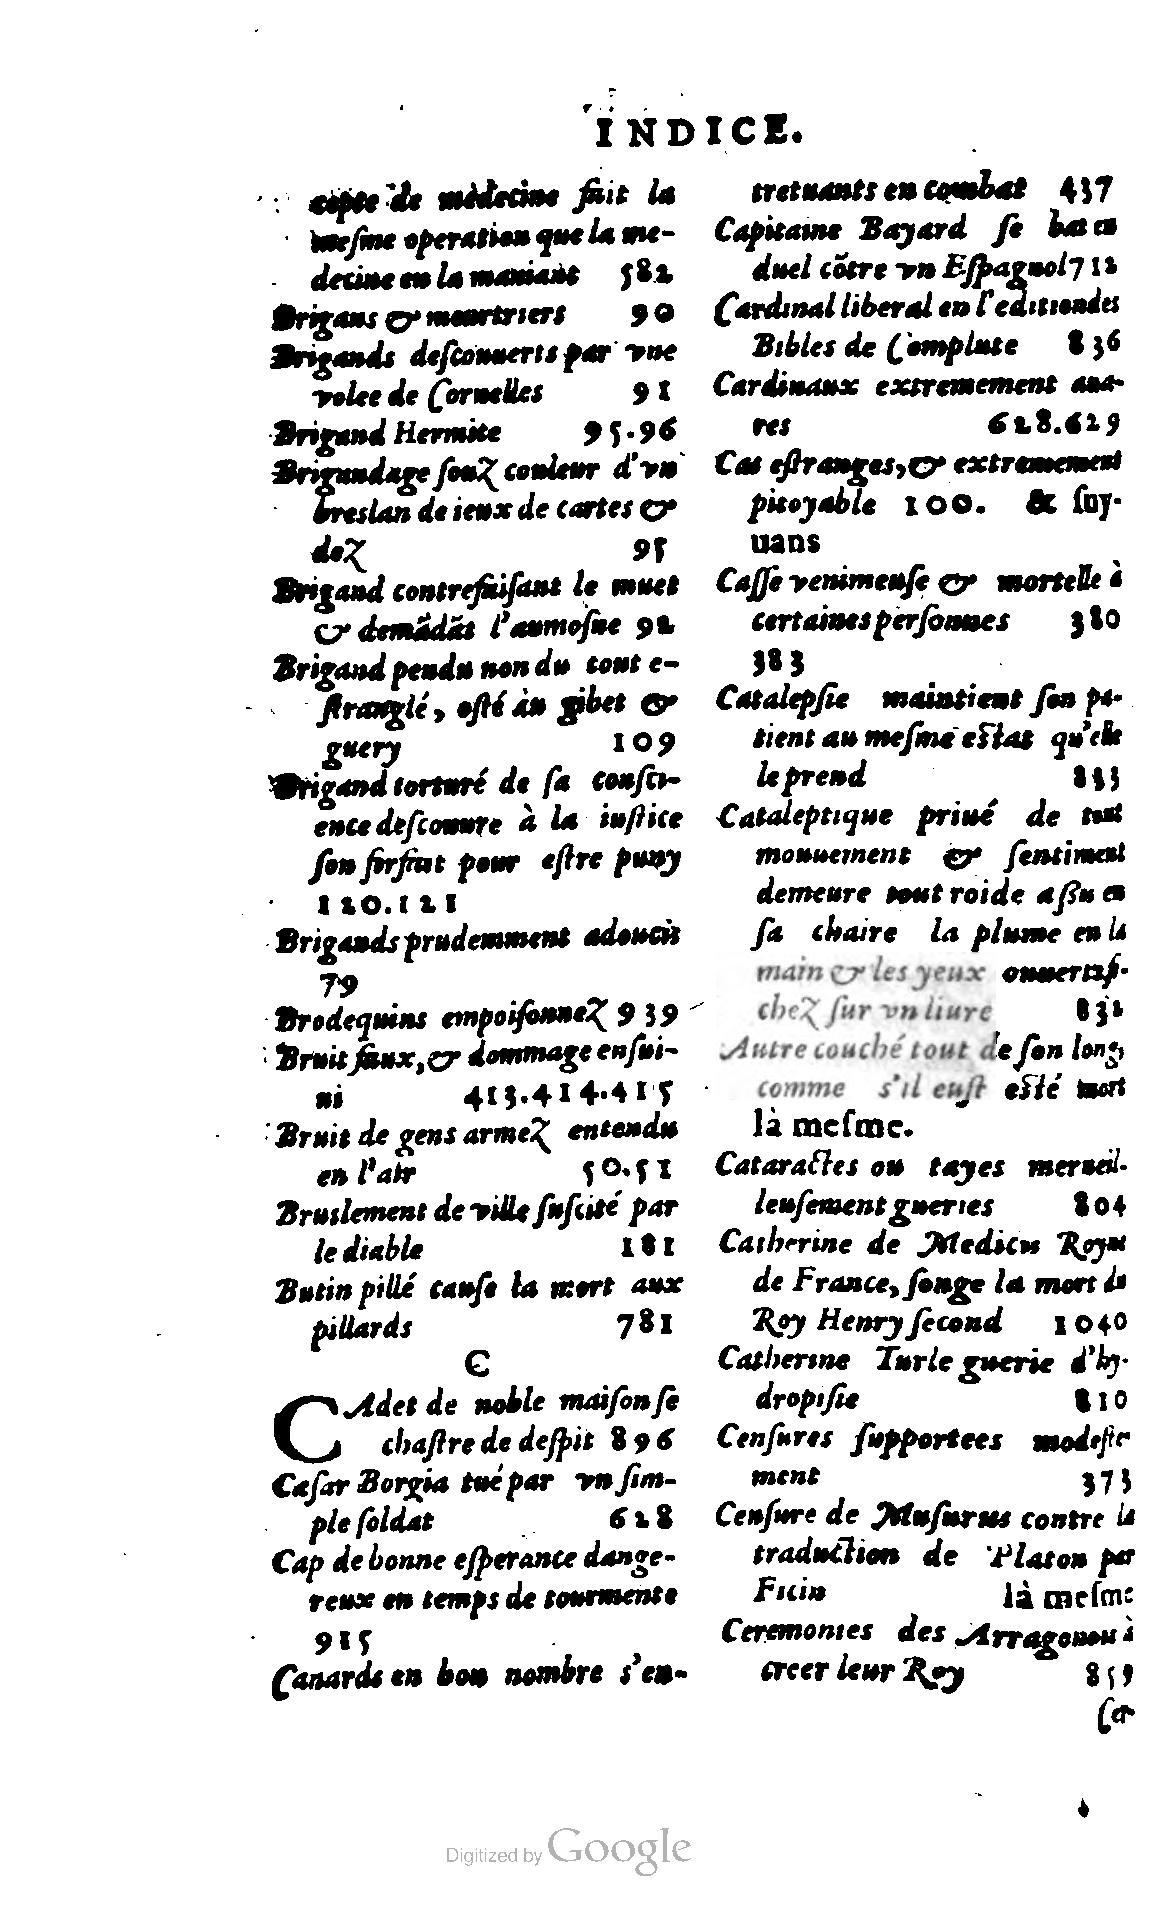 INDICE.
cepte de mèdecine fait la
meſme operation que la me-
decine en la maniant 582
Brigans & meurtriers 90
Brigands deſcouuerts par vne
volee de Cornelles 91
Brigand Hermite 95.96
Brigandage ſouz couleur d'vn
breslan de ieux de cartes &
dez 95
Brigand contrefaiſant le muet
& demādāt l'aumoſne 92
Brigand pendu non du tout e-
ſtranglé, oſté au gibet &
guery 109
Brigand torturé de ſa conſci-
ence deſcouure à la iuſtice
ſon forfait pour eſtre puny
120.121
Brigands prudemment adoucis
79
Brodequins empoiſonnez 939
Bruit faux, & dommage enſui-
ui 413.414.415
Bruit de gens armez entendu
en l'air 50.51
Bruslement de ville ſuſcité par
le diable 181
Butin pillé cauſe la mort aux
pillards 781
C
CAdet de noble maiſon ſe
chaſtre de deſpit 896
Cæſar Borgia tué par vn ſim-
ple ſoldat 628
Cap de bonne eſperance dange-
reux en temps de tourmente
915
Canards en bon nombre s'en-
tretuants en combat 437
Capitaine Bayard ſe bat en
duel cōtre vn Eſpagnol 712
Cardinal liberal en l'edition des
Bibles de Complute 836
Cardinaux extremement aua-
res 628.629
Cas eſtranges, & extremement
pitoyable 100. & ſuy-
uans
Caſſe venimeuſe & mortelle à
certaines perſonnes 380
383
Catalepſie maintient ſon pa-
tient au meſme eſtat qu'elle
le prend 833
Cataleptique priué de tout
mouuement & ſentiment
demeure tout roide aſſis en
ſa chaire la plume en la
main & les yeux ouuerts fi-
chez ſur vn liure 832
Autre couché tout de ſon long,
comme s'il euſt eſté mort
là meſme.
Cataractes ou tayes merueil-
leuſement gueries 804
Catherine de Medicis Royne
de France, ſonge la mort du
Roy Henry ſecond 1040
Catherine Turle guerie d'hy-
dropiſie 810
Cenſures ſupportees modeſte-
ment 373
Cenſure de Muſurus contre la
traduction de Platon par
Ficin là meſme
Ceremonies des Arragonou à
creer leur Roy 859
Cer
Digitized by Google